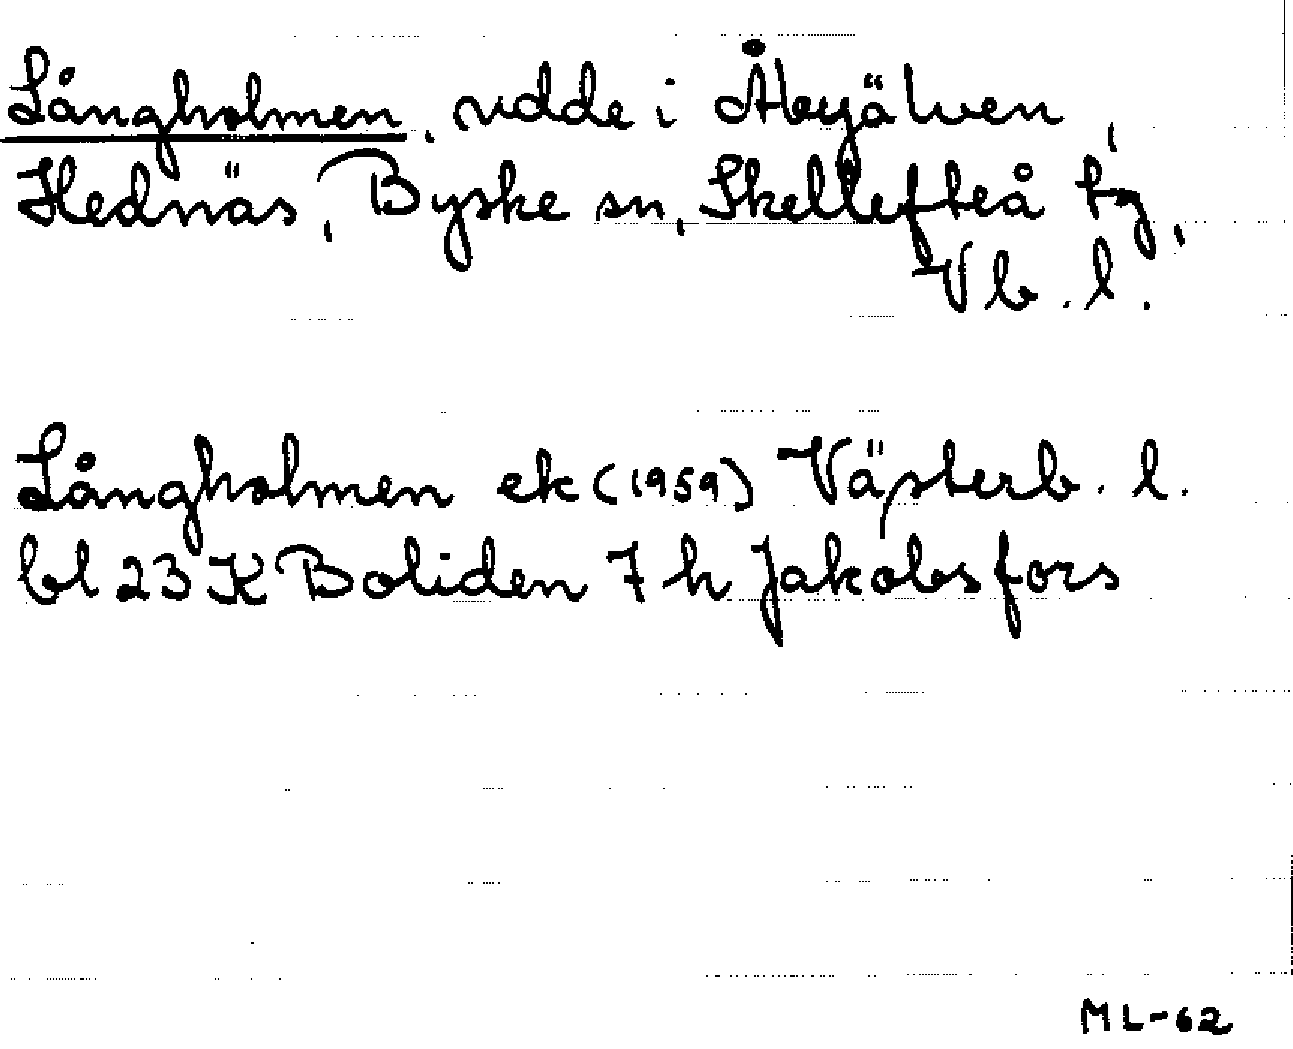 Långholmen, udde i Åbyälven,
Hednäs, Byske sn, Skellefteå tg,
Vb. l.
Långholmen ek (1959) Västerb. l.
bl 23 K Boliden 7 h Jakobsfors
ML-62